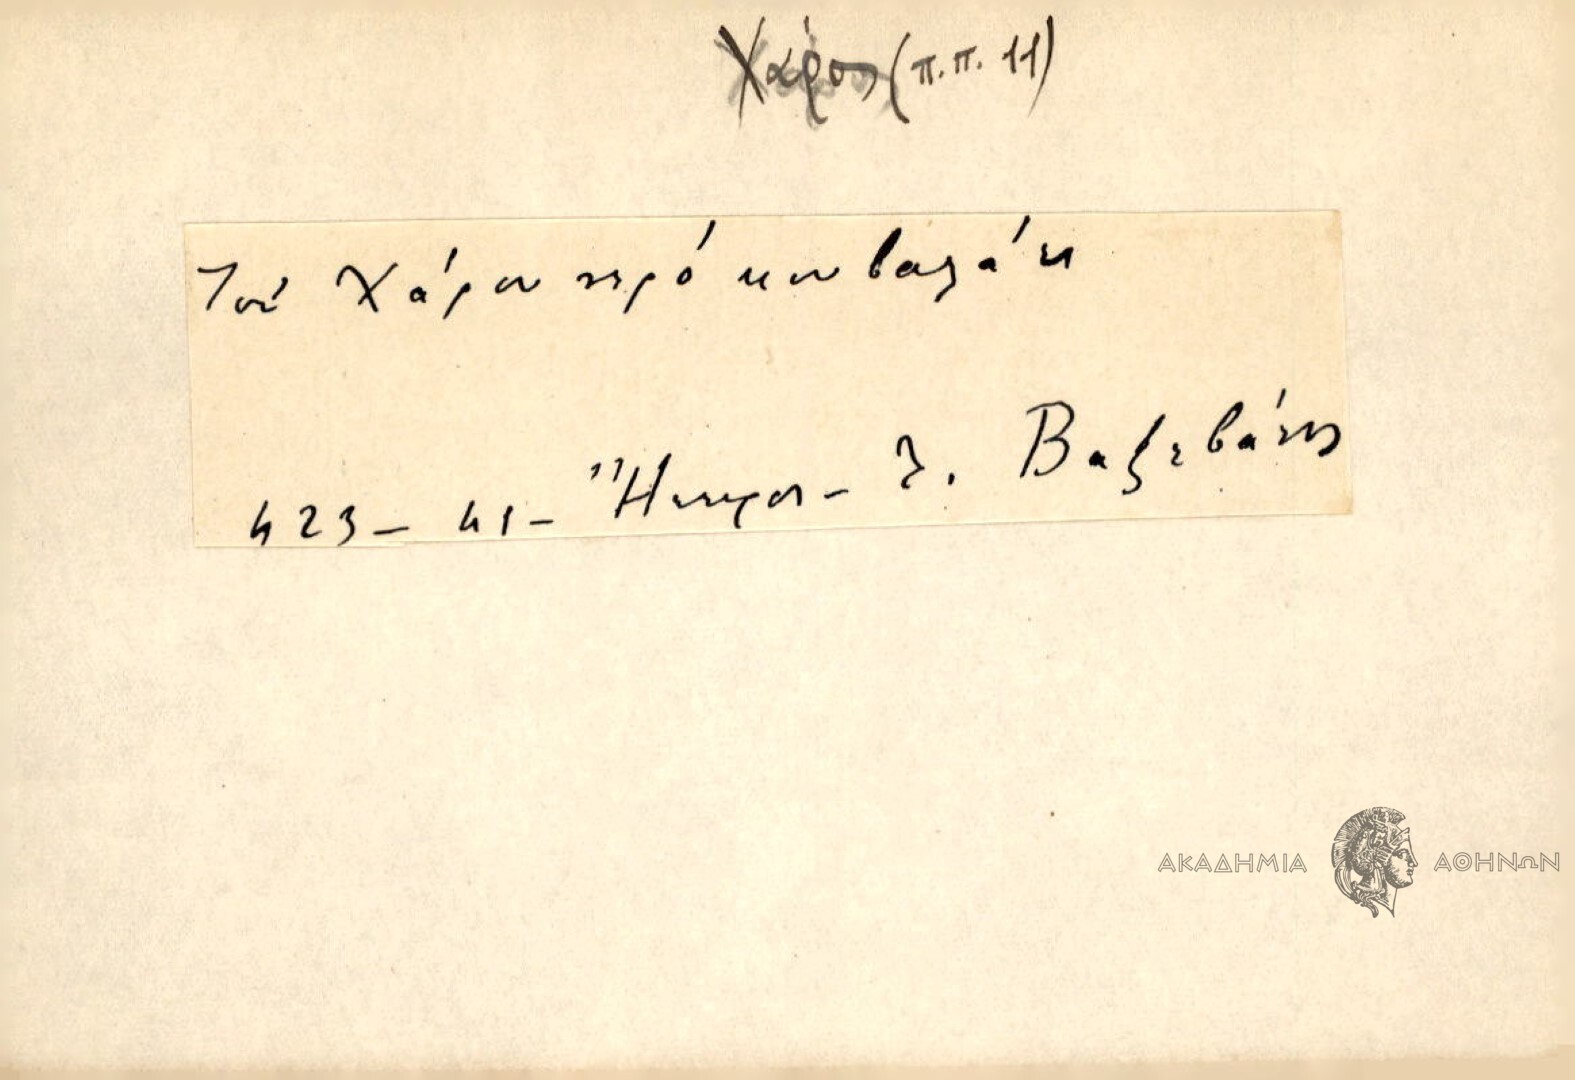 Χάρος (π.π. 11)
Τοῦ Χάρου νερό κουβαλάει
423 - 41 - Ἤπειρος - Ι. Βαξεβάνης
ΑΚΑΔΗΜΙΑ ΑΘΗΝΩΝ